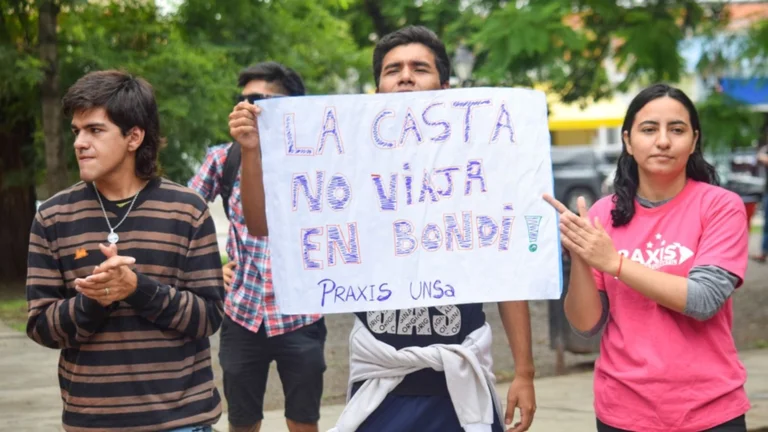 LA CASTA
NO VIAJA
EN BONDI!
PRAXIS UNSa
PRAXIS